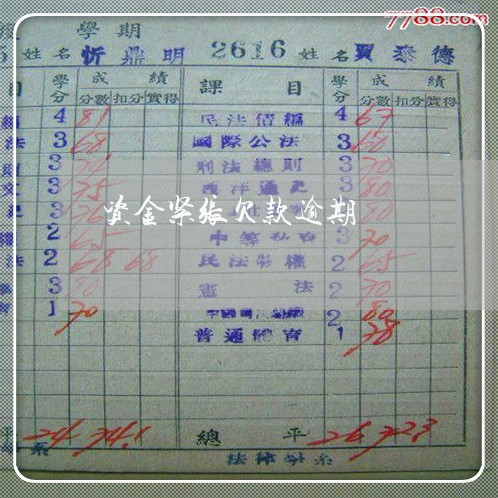 7788.com
學期
姓名 忻鼎明 2616 姓名 賈泰德
目 學分 成績 課目 學分 成績
分數 扣分 實得 分數 扣分 實得
4 81 民法債編 4 67
法 3 68 國際公法 3 60
3 刑法總則 3 70
3 75 西洋通史 3 80
3 3 80
資金紧张欠款逾期
2 65 3 70
法 2 68 68 民法物權 2 65
3 80 憲法 2 70
1 70 2 80
普通體育 1 78
平 24 74.1 總平 26 72.3
系 法律學系